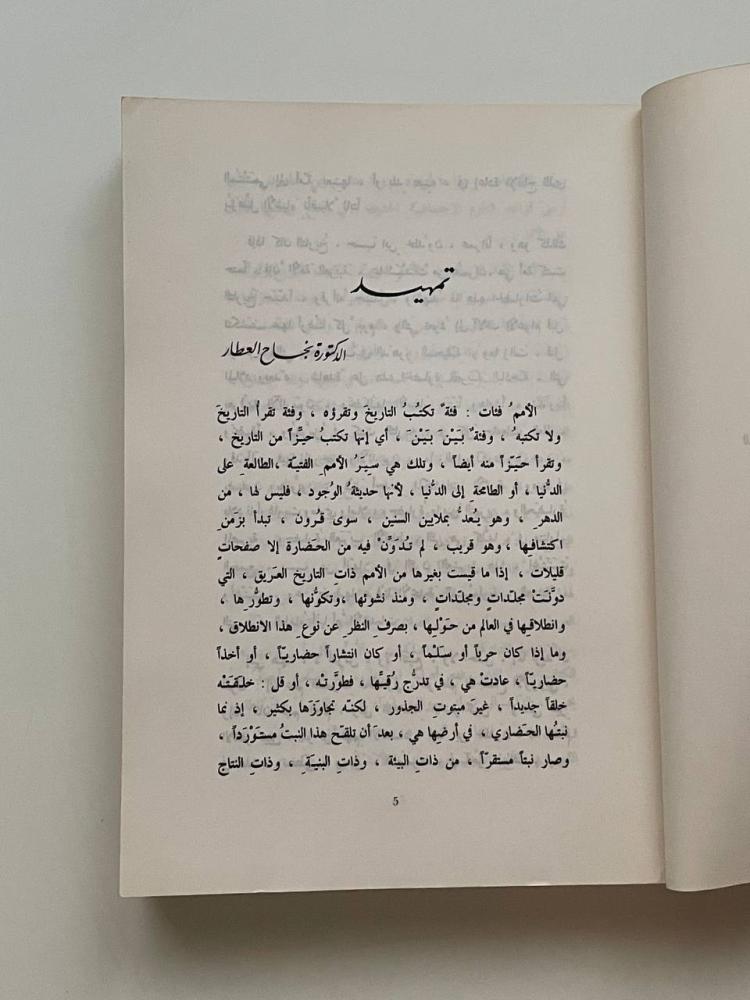 تمهيد
الدكتورة نجاح العطار
الأممُ فئات : فئةٌ تكتُبُ التاريخَ وتقرؤه ، وفئة تقرأُ التاريخَ
ولا تكتبهُ ، وفئةٌ بَيْنَ بَيْنَ ، أي إنها تكتبُ حيِّزاً من التاريخ ،
وتقرأ حَيِّزاً منه أيضاً ، وتلك هي سِيَرُ الأممِ الفتيّة ،الطالعةِ على
الدُّنيا ، أو الطامحةِ إلى الدُّنيا ، لأنها حديثةُ الوُجود ، فليس لها ، من
الدهرِ ، وهو يُعدُّ بملايين السنين ، سوى قُرون ، تبدأ بزَمَنِ
اكتشافِها ، وهو قريب ، لم تُدَوَّنْ فيه من الحَضارة إلا صفحاتٍ
قليلات ، إذا ما قيست بغيرها من الأمم ذاتِ التاريخ العَريق ، التي
دوَّنَتْ مجلّداتٍ ومجلّداتٍ ، ومنذ نشوئها ،وتكوُّنها ، وتطوُّرِها ،
وانطلاقِها في العالم من حَوْلِها ، بصرفِ النظرِ عن نوعِ هذا الانطلاق ،
وما إذا كان حرباً أو سَلْماً ، أو كان انتشاراً حضاريّاً ، أو أخذاً
حضاريّاً ، عادتْ هي ، في تدرُّج رُقيِّها ، فطوَّرتْه ، أو قل : خلَقَتْه
خلقاً جديداً ، غيرَ مبتوتِ الجذور ، لكنّه تجاوَزَها بكثير ، إذ نما
نبتُها الحَضاري ، في أرضِها هي ، بعدَ أن تلقّح هذا النبتُ مستوْرَداً ،
وصار نبتاً مستقرّاً ، من ذاتِ البيئة ، وذاتِ البنيَةِ ، وذاتِ النتاج
5